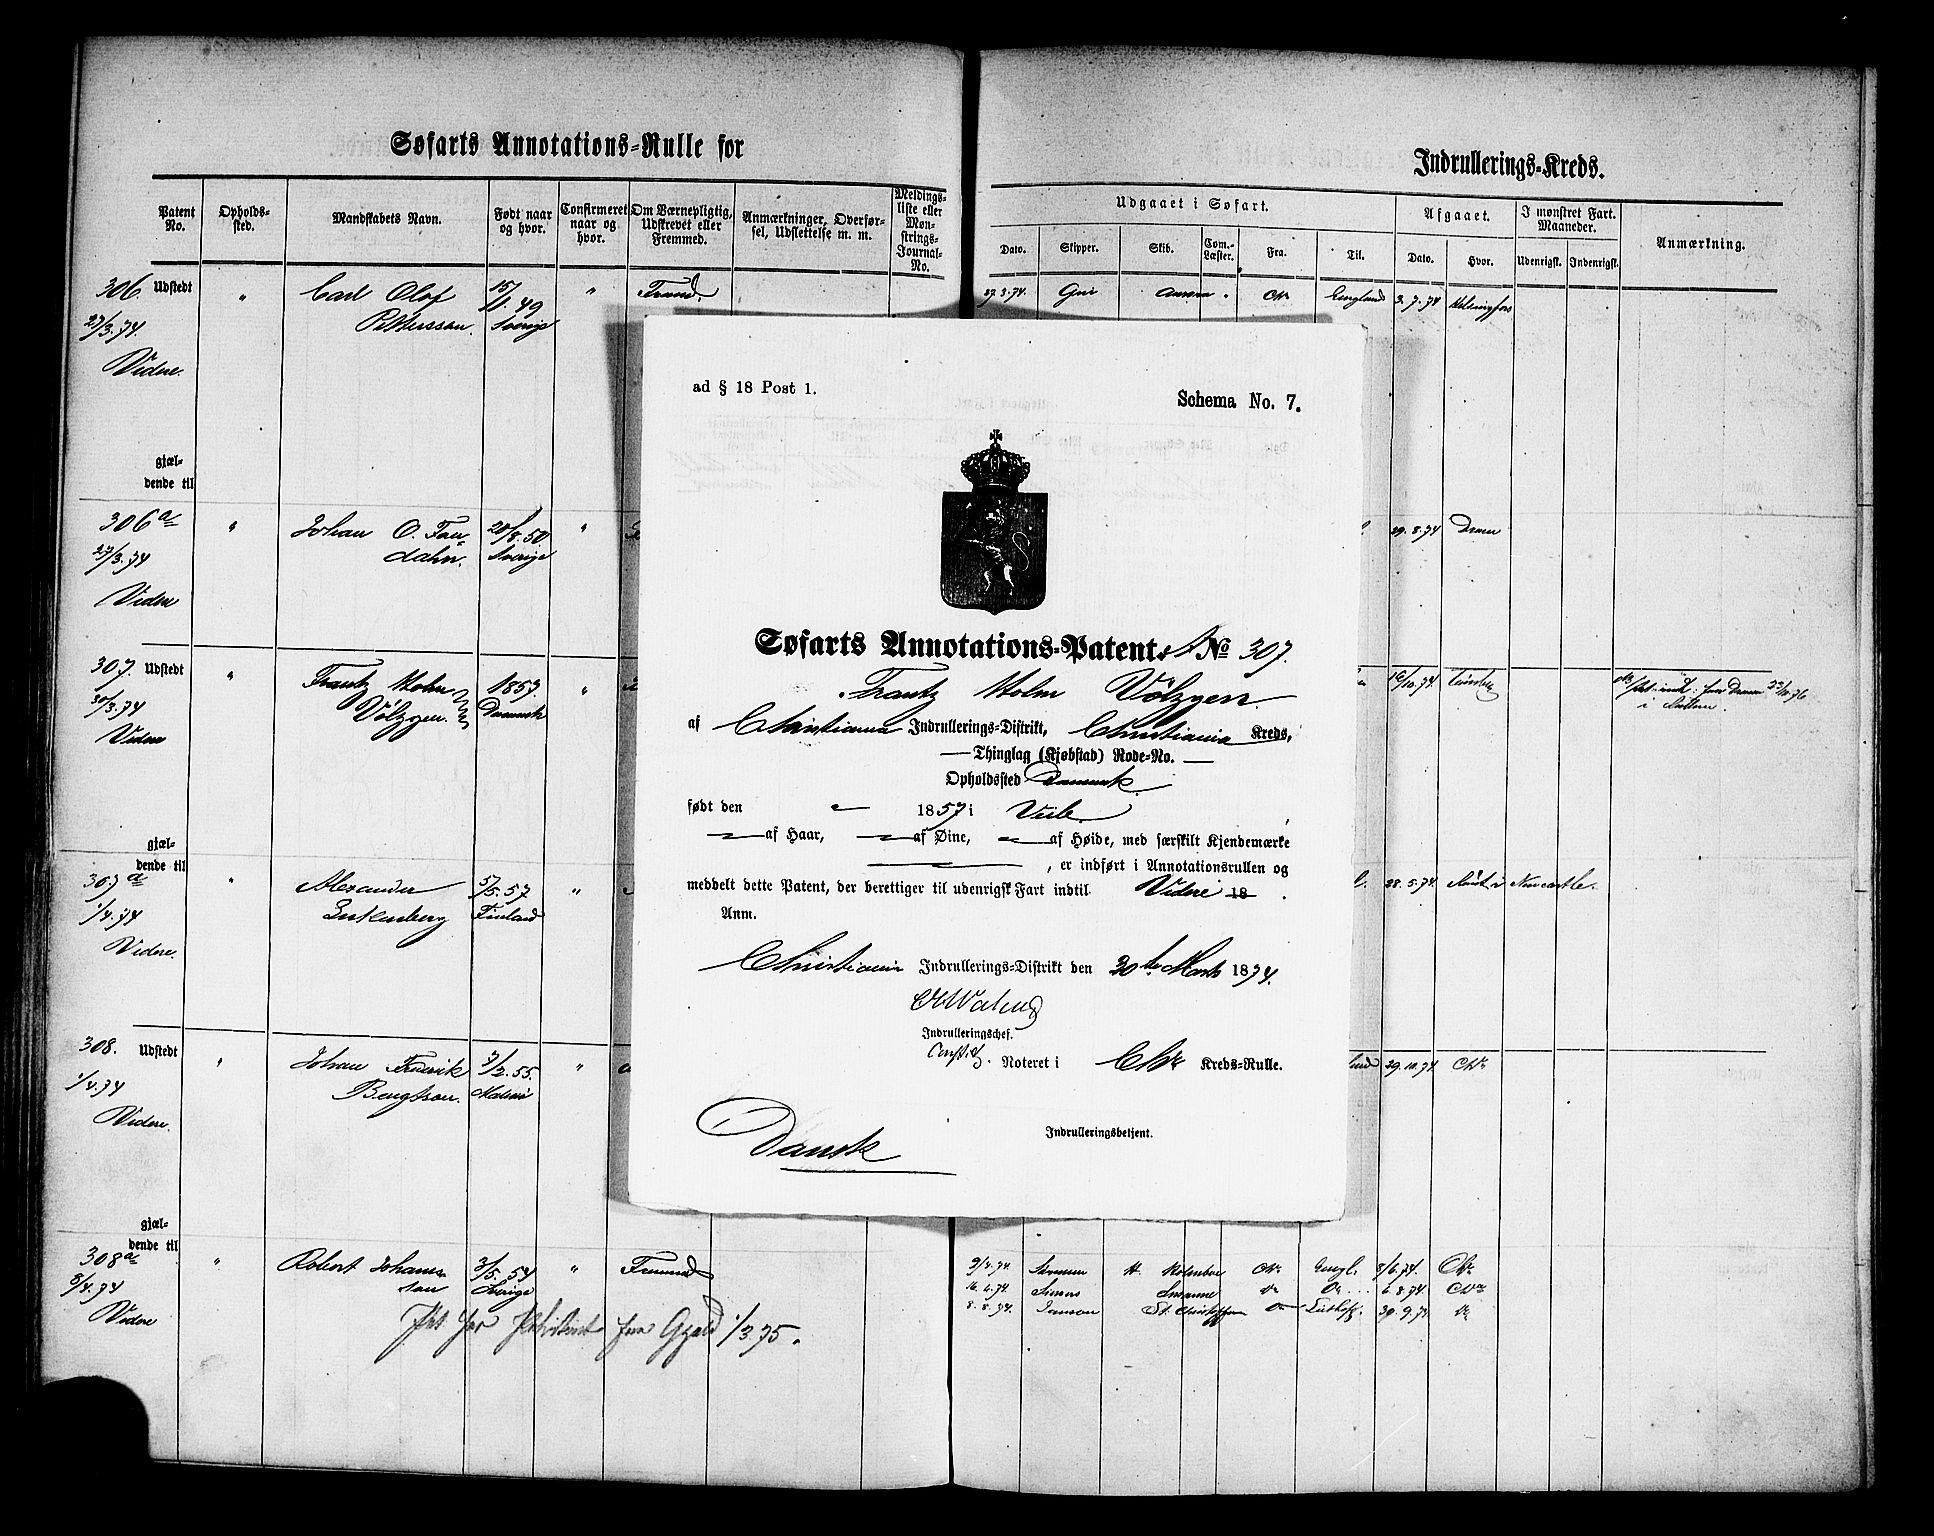 Søfarts Annotations-Rulle for
Patent No.
Opholds-sted.
Mandskabets Navn.
Født naar og hvor.
Confirmeret naar og hvor.
Om Værnepligtig, Udskrevet eller Fremmed.
Anmærkninger, Overførsel, Udslettelse m. m.
Meldings-liste eller Mønstrings-Journal-No.
306. Udstedt " Carl Olof 15/11 49 " Fremd.
27/3.74. Pettersson. Sverige
Videre.
gjæl-
dende til
306 a " Johan O. Fan= 20/8.50 "
27/3.74 dahn. Sverige
Videre
307. Udstedt " Frantz Holm 1857. "
30/3.74 Völzgen. Danmark
Videre
gjæl-
dende til
307 a " Alexander 5/5.57 "
1/4.74 Finland
Videre.
308. Udstedt " Johan Fredrik 7/2.55. "
1/4.74 Bengtson. Malmö
Videre.
gjæl-
dende til
308 a " Robert Johans= 3/5.54 " Fremmed
8/4.74 son Sverige
Videre
1/3.75.
Indrullerings-Kreds.
Udgaaet i Søfart.
Afgaaet.
I mønstret Fart. Maaneder.
Anmærkning.
Dato. Skipper. Skib. Com.-Læster. Fra. Til. Dato. Hvor. Udenrigsk. Indenrigsk.
27.3.74. Aurora " Chr England 3.7.74 Helsingfors
29.8.74
16/10.74
28.5.74. Newcastle.
29.10.74 Chr
9/4.74 H. Holmboe Chr Engl. 3/6.74. Chr
16.4.74. Susanne do 6.8.74 Chr
8.8.74. Janson St. Christoffer 30.9.74 do
ad § 18 Post 1.
Schema No. 7.
Søfarts Annotations-Patent. A No 307.
Frantz Holm Völzgen
af Christiania Indrullerings-Distrikt, Christiania Kreds,
Thinglag (Kjøbstad) Rode-No.
Opholdssted Danmark
født den " 1857 i Veile
af Haar, af Øine, af Høide, med særskilt Kjendemærke
, er indført i Annotationsrullen og
meddelt dette Patent, der berettiger til udenrigsk Fart indtil Videre 18 .
Anm.
Christiania Indrullerings-Distrikt den 30te Marts 1874.
Indrulleringschef.
Const. Noteret i Chr Kreds-Rulle.
Indrulleringsbetjent.
Dansk